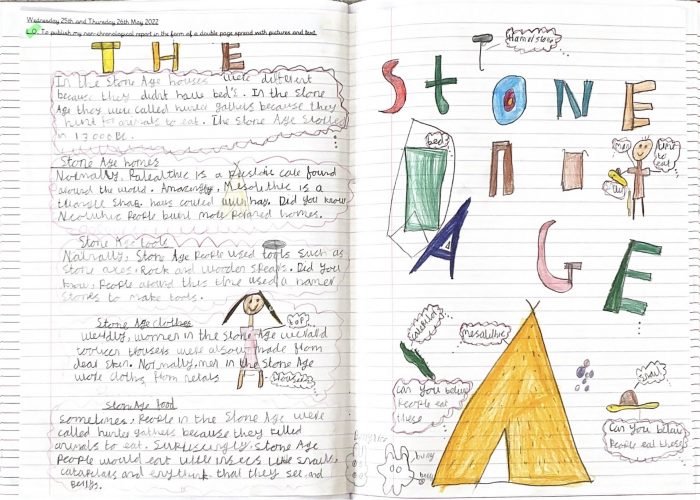 Wednesday 25th and Thursday 26th May 2022
L.O. To publish my non-chronological report in the form of a double page spread with pictures and text.
THE
In the Stone Age houses were different
because they didnt have bed's. In the Stone
Age they were called hunter gathers because they
hunt animals to eat. The Stone Age
in
Stone Age homes
Normally, is a cave found
around the world. Amazingly, Mesolithic is a
triangle shape haus coulied with hay. Did you know
Neolithic People built more homes.
Stone Age tools
Natrally, Stone Age People used tools such as
Stone axes, Rock and wooden spears. Did you
know, People around this time used a hamer
Stones to make tools.
Stone Age clothes
weridly, women in the Stone Age
trousers were also made from
dear skin. Normally, men in the Stone Age
wore cloths from
top
trousers
Stone Age food
Sometimes, People in the Stone Age were
called hunter gathers because they killed
animals to eat. Surprisingly, Stone Age
People would eat little insects like snails,
catapilas and enything that they see and
STONE
AGE
bed
men
Time to
eat
Mesolithic
Can you beliv
People eat
these
snail
Can you beliv
People eat these
buny